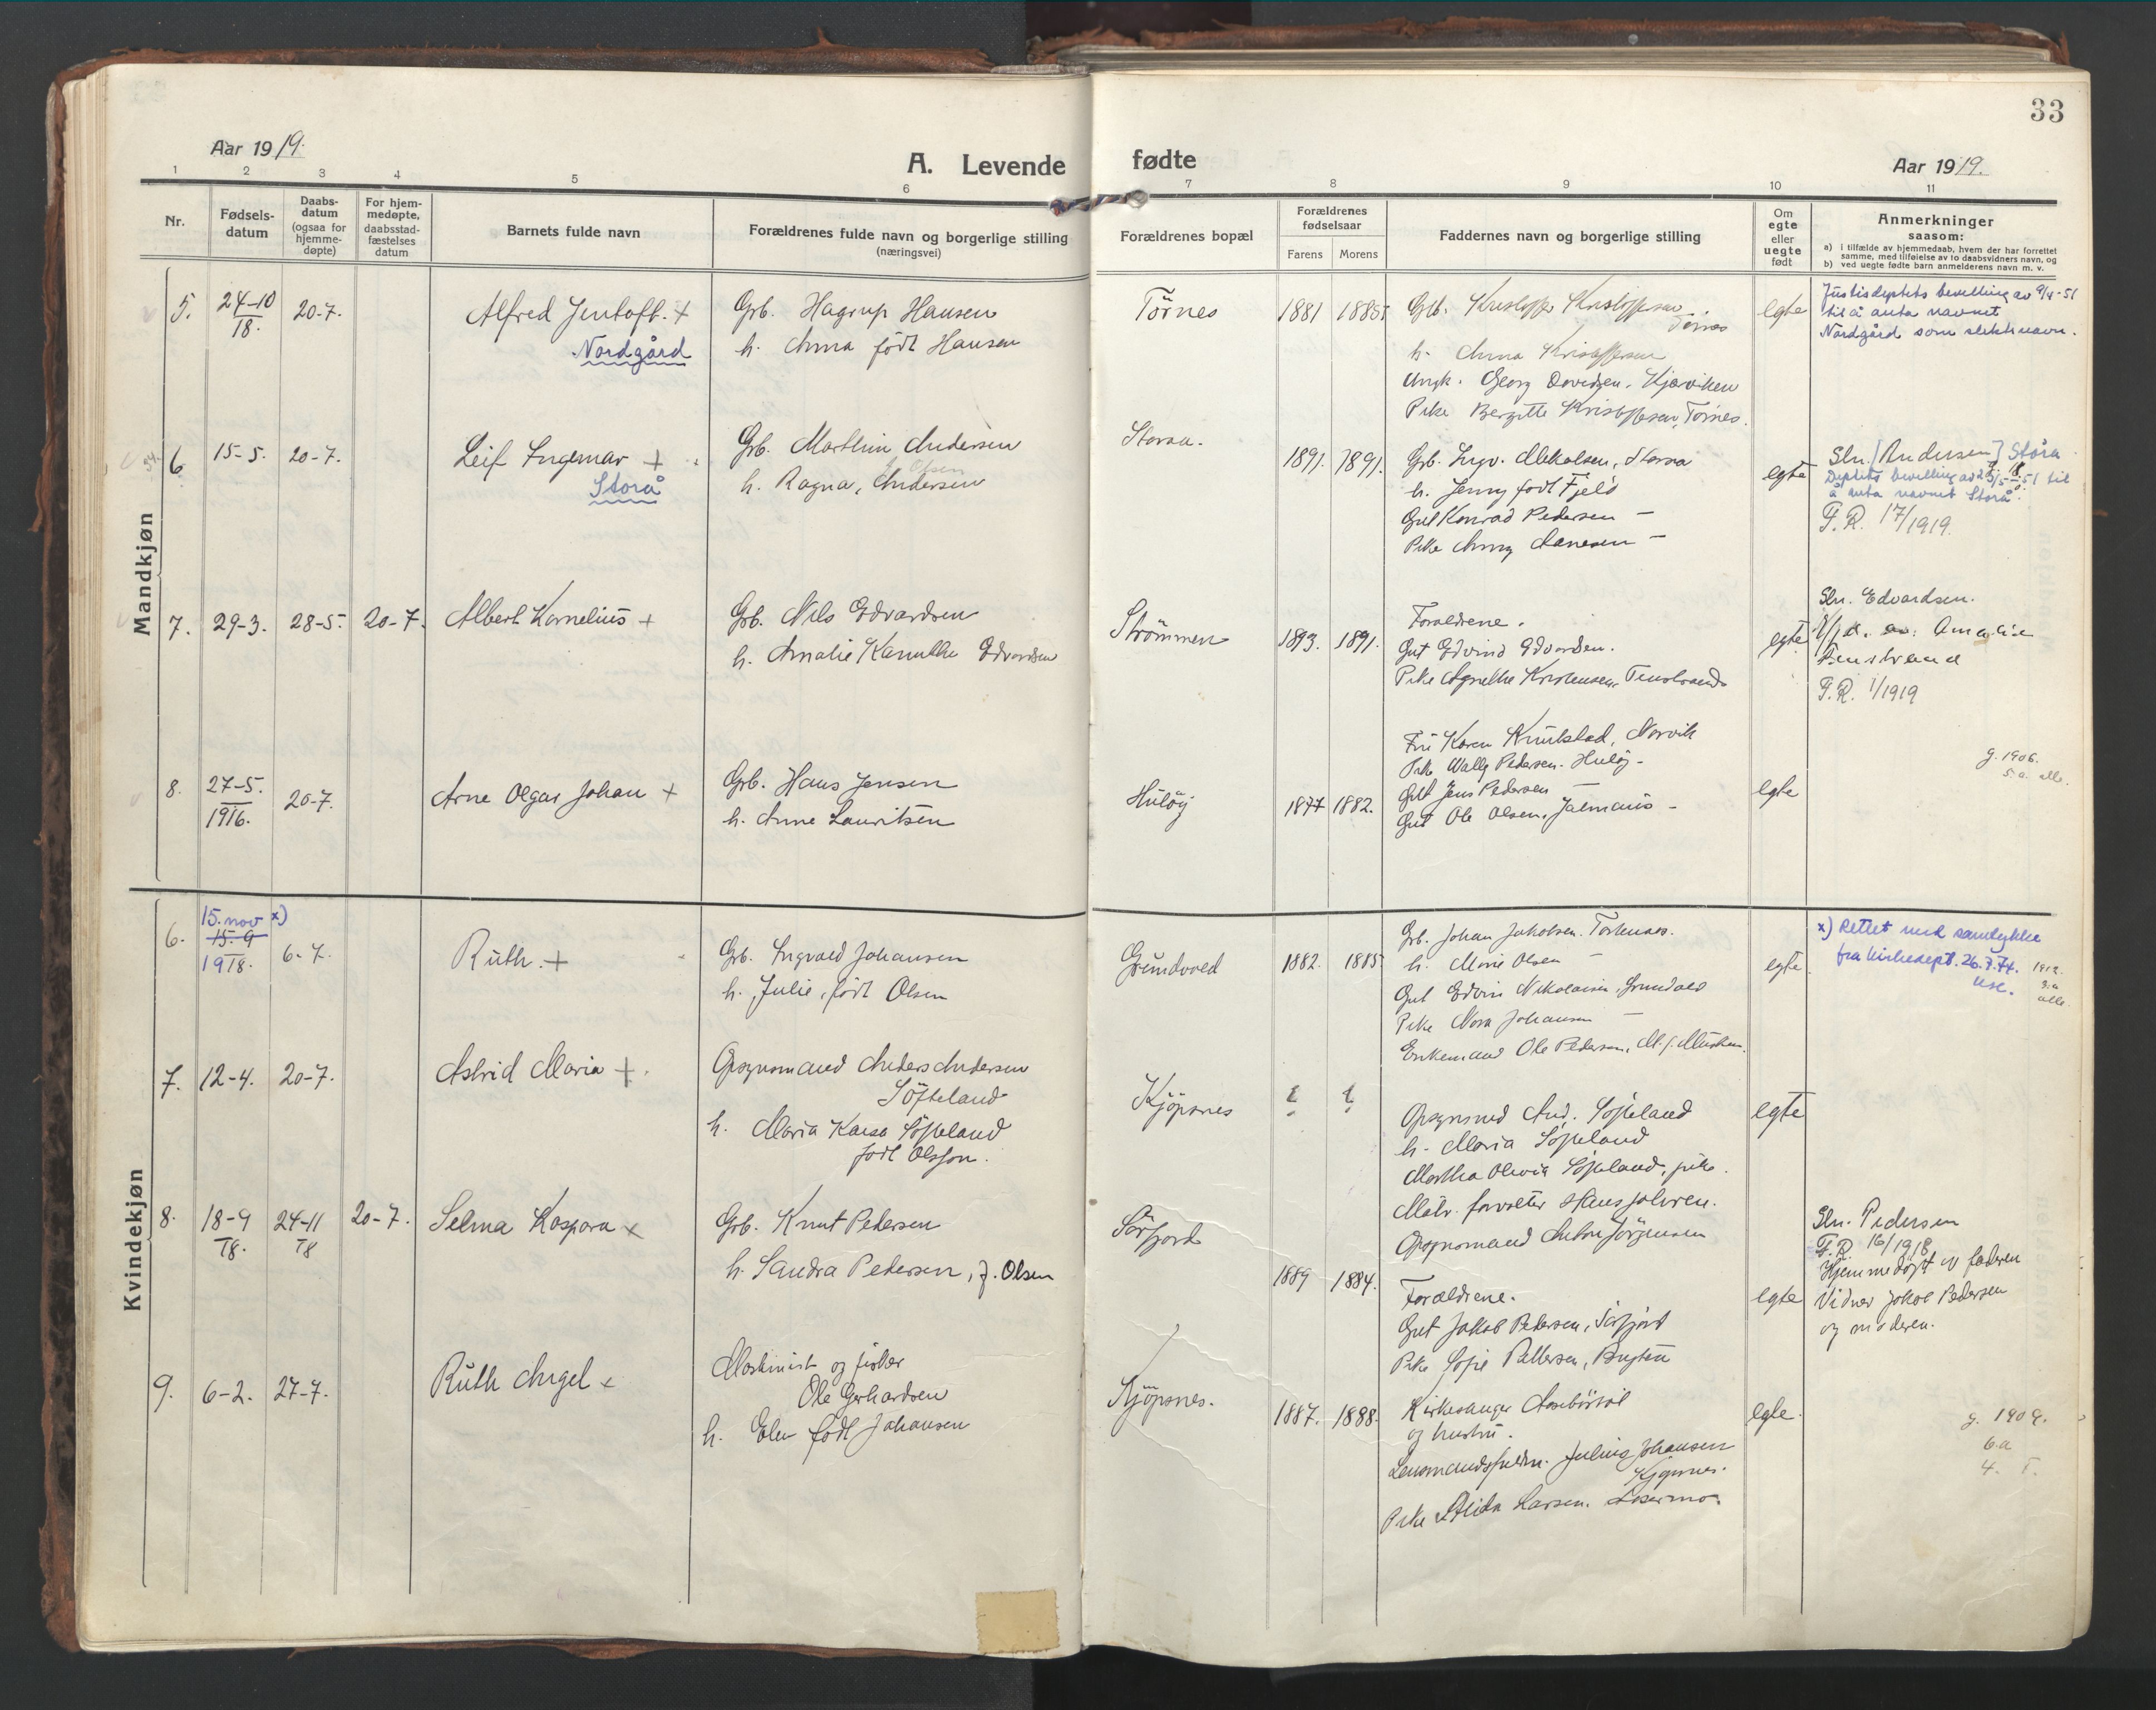 33
Aar 1919.
A. Levende fødte
Aar 1919.
1 2 3 4 5 6 7 8 9 10 11
Nr.
Fødsels-
datum
Daabs-
datum
(ogsaa for
hjemme-
døpte)
For hjem-
medøpte,
daabsstad-
fæstelses
datum
Barnets fulde navn
Forældrenes fulde navn og borgerlige stilling
(næringsvei)
Forældrenes bopæl
Forældrenes
fødselsaar
Farens Morens
Faddernes navn og borgerlige stilling
Om
egte
eller
uegte
født
Anmerkninger
saasom:
a) i tilfælde av hjemmedaab, hvem der har forrettet
samme, med tilføielse av to daabsvidners navn, og
b) ved uegte fødte barn anmelderens navn m. v.
Mandkjøn
5. 24-10 18. 20-7.
Alfred Jentoft. +
Nordgård
Grb. Hagrup Hansen
h. Anna født Hansen
Törnes
1881 1885.
Grb. Kristoffer Kristoffersen
Törnes
h. Anna Kristoffersen
Ungk. Georg Davidsen, Kjærviken
Pike Bergitte Kristoffersen, Törnes.
egte
Justisdeptets bevilling av 9/4-51
til å anta navnet
Nordgård som slektsnavn.
6. 15-5. 20-7.
Leif Ingemar +
Storå
Grb. Marthin Andersen
f. Olsen
h. Ragna, Andersen
Storaa.
1891. 1891.
Grb. Ingv. Mikalsen, Storaa
h. Jenny født Fjeld
Gut Konrad Pedersen —
Pike Anny Hansen —
egte
Sln. [Andersen] Storå
Deptets bevilling av 51 til
å anta navnet Storå.
F.R. 17/1919.
7. 29-3. 28-5. 20-7.
Albert Kornelius +
Grb. Nils Edvardsen
h. Amalie Kamilla Edvardsen
Strömmen
1893. 1891.
Forældrene.
Gut Edvind Edvardsen.
Pike Agnethe Kristensen, Tenstrand
egte
Sln. Edvardsen.
Hjd. av: Amalie
Tenstrand
F.R. 1/1919
8. 27-5. 1916. 20-7.
Arne Olgar Johan +
Grb. Hans Jensen
h. Anne Lauritsen
Hulöy
1877 1882.
Fru Karen Knutstad, Narvik
Pike Wally Pedersen. Hulöy -
Gut Jens Pedersen —
Gut Ole Olsen, Jalmans -
egte
g. 1906.
5 a. alle.
Kvindekjøn
6. 15. nov x)
15-9
1918. 6-7.
Ruth. +
Grb. Ingvald Johansen
h. Julie, født Olsen
Grundvaed
1882. 1885
Grb. Johan Jakobsen. Torknes.
h. Marie Olsen —
Gut Edvin Nikolaisen, Grundvaed
Pike Nora Johansen —
Enkemand Ole Pedersen, M.
egte.
x) Rettet med samtykke
fra Kirkedept. 26.7.74.
1912.
3 a
alle.
7. 12-4. 20-7.
Astrid Maria +.
Opsynsmand Anders Andersen
Söfteland
h. Maria Kaisa Söfteland
født Olsson.
Kjöpsnes
? ?
Opsynsmd And. Söfteland
h. Maria Söfteland
Martha Olivia Söfteland, pike.
Matr. forvalter Hans Johnsen.
Opsynsmand Anton Jörgensen
egte
8. 18-9 18. 24-11 18 20-7.
Selma Kaspara x
Grb. Knut Pedersen
h. Sandra Pedersen, f. Olsen
Sörfjord
1889 1884.
Forældrene.
Gut Jakob Pedersen, Sörfjord
Pike Sofie Pettersen,
egte
Sln. Pedersen
F.R. 16/1918
Hjemmedøpt av faderen
Vidner Jakob Pedersen
og moderen.
9. 6-2. 27-7.
Ruth Angel x
Maskinist og fisker
Ole Gerhardsen
h. Elen født Johansen
Kjöpsnes.
1887. 1888.
Kirkesanger Aaseböstöl
og hustru.
Lensmandsfuldm. Julius Johansen
Kjöpsnes.
Pike Alida Larsen.
egte.
g. 1909.
6 a
4.